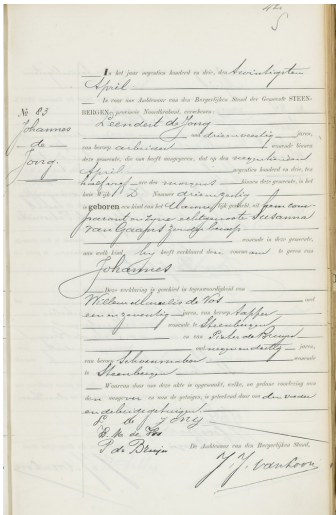 5
In het jaar negentien honderd en drie, den twintigsten
April
is voor ons Ambtenaar van den Burgerlijken Stand der Gemeente STEEN-
BERGEN, provincie Noordbrabant, verschenen:
No 83
Johannes
de
Jong.
Leendert de Jong
oud drieenveertig jaren,
van beroep arbeider, wonende binnen
deze gemeente, die ons heeft aangegeven, dat op den negentienden
April negentien honderd en drie, ten
half ure des morgens binnen deze gemeente, in het
huis Wijk D. Nummer
is geboren een kind van het Mannelijk geslacht, uit hem com-
parant en zijne echtgenoote Susanna
van Gaans zonder beroep
wonende in deze gemeente,
aan welk kind hij heeft verklaard den voornaam te geven van
Johannes
Deze verklaring is geschied in tegenwoordigheid van
Willem Marelis de Vos oud
eenenzeventig jaren, van beroep tapper
wonende te Steenbergen
en van Pieter de Bruijn
oud negenendertig jaren,
van beroep Schoenmaker wonende
te Steenbergen
Waarvan door ons deze akte is opgemaakt, welke, na gedane voorlezing aan
den aangever en aan de getuigen, is geteekend door ons den vader
en de beide getuigen.
L de Jong
W. M. de Vos
P de Bruijn
De Ambtenaar van den Burgerlijken Stand,
J. J. van Loon